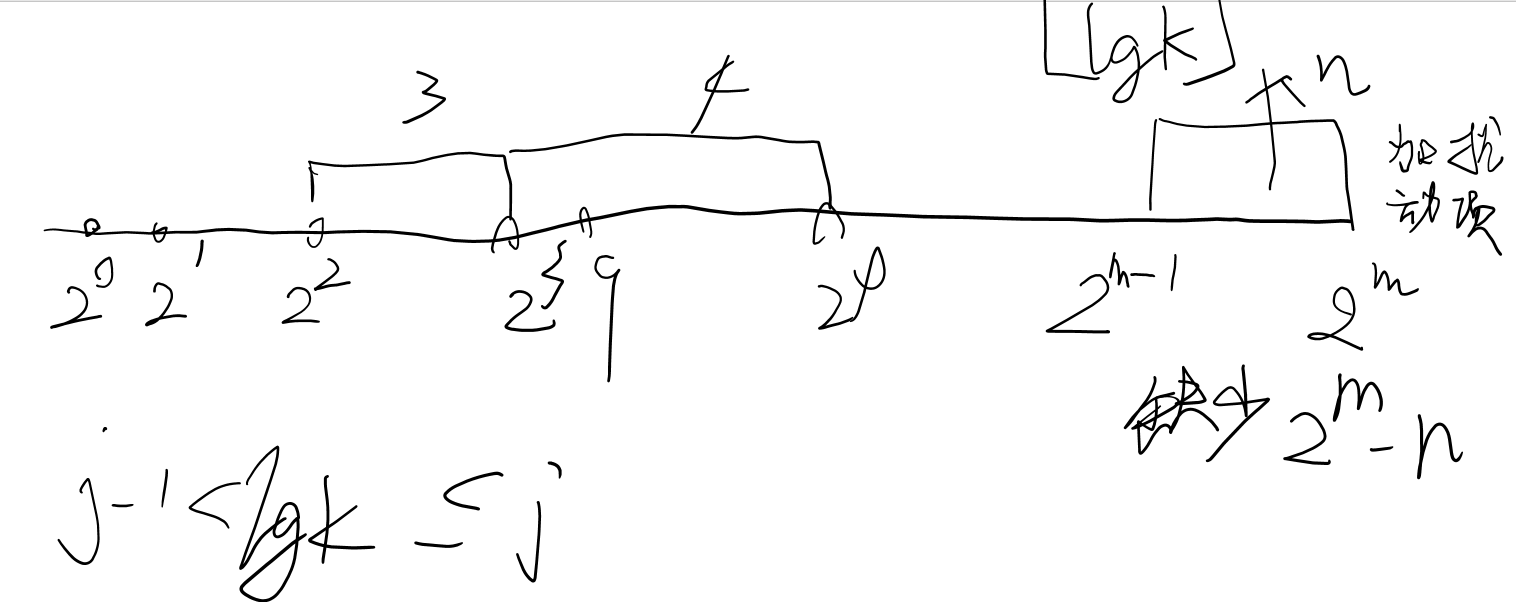 ⌈lgk⌉
3 4 n
加扰
动项
2^0 2^1 2^2 2^3 9 2^4 2^{m-1} 2^m
缺少 2^m - n
j-1 < lgk ≤ j